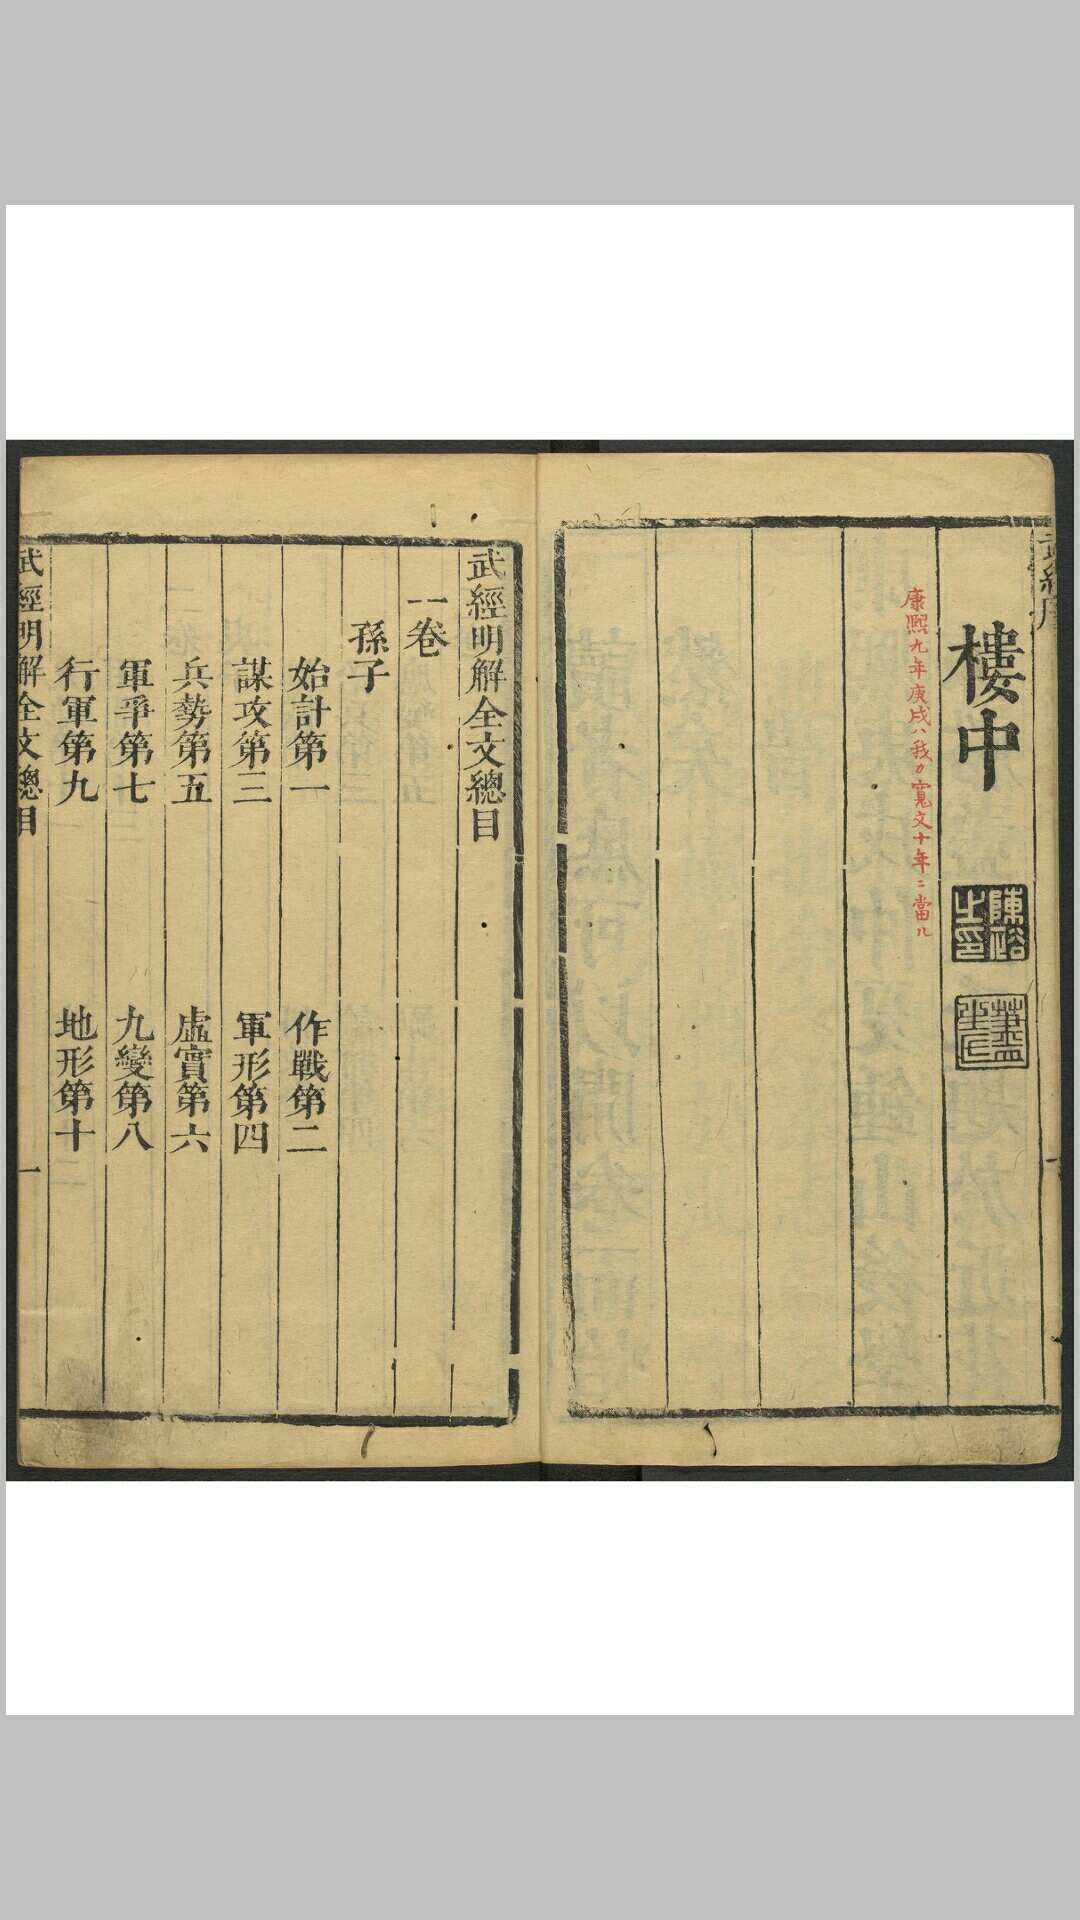 武經序
樓中
康熙九年庚戌ハ我カ寬文十年ニ當ル
一
武經明解全文總目
一卷
孫子
始計第一
作戰第二
謀攻第三
軍形第四
兵勢第五
虛實第六
軍爭第七
九變第八
行軍第九
地形第十
武經明解全文總目
一